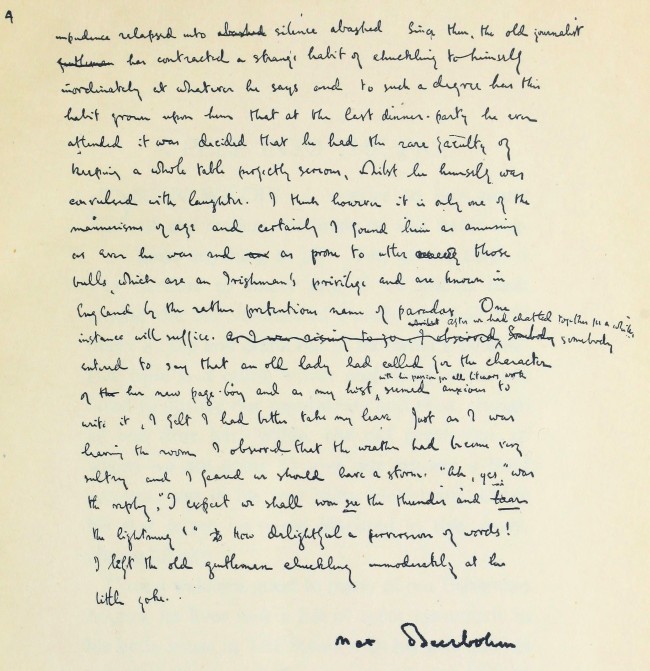 4
impudence relapsed into abashed silence abashed Since then, the old journalist
gentleman has contracted a strange habit of chuckling to himself
inordinately at whatever he says and to such a degree has this
habit grown upon him that at the last dinner-party he ever
attended it was decided that he had the rare faculty of
keeping a whole table perfectly serious, whilst he himself was
convulsed with laughter. I think however it is only one of the
mannerisms of age and certainly I found him as amusing
as ever he was and as prone to utter those
bulls, which are an Irishman's privilege and are known in
England by the rather pretentious name of paradox. One
whilst after we had chatted together for a while,
instance will suffice. as I was rising to go, I observed, Somebody somebody
entered to say that an old lady had called for the character
with his passion for all literary work
of the her new page-boy and as my host, seemed anxious to
write it, I felt I had better take my leave Just as I was
leaving the room I observed that the weather had become very
sultry and I feared we should have a storm. "Ah, yes," was
the reply, "I expect we shall soon see the thunder and hear
the lightning!" How delightful a perversion of words!
I left the old gentleman chuckling immoderately at his
little joke.
Max Beerbohm